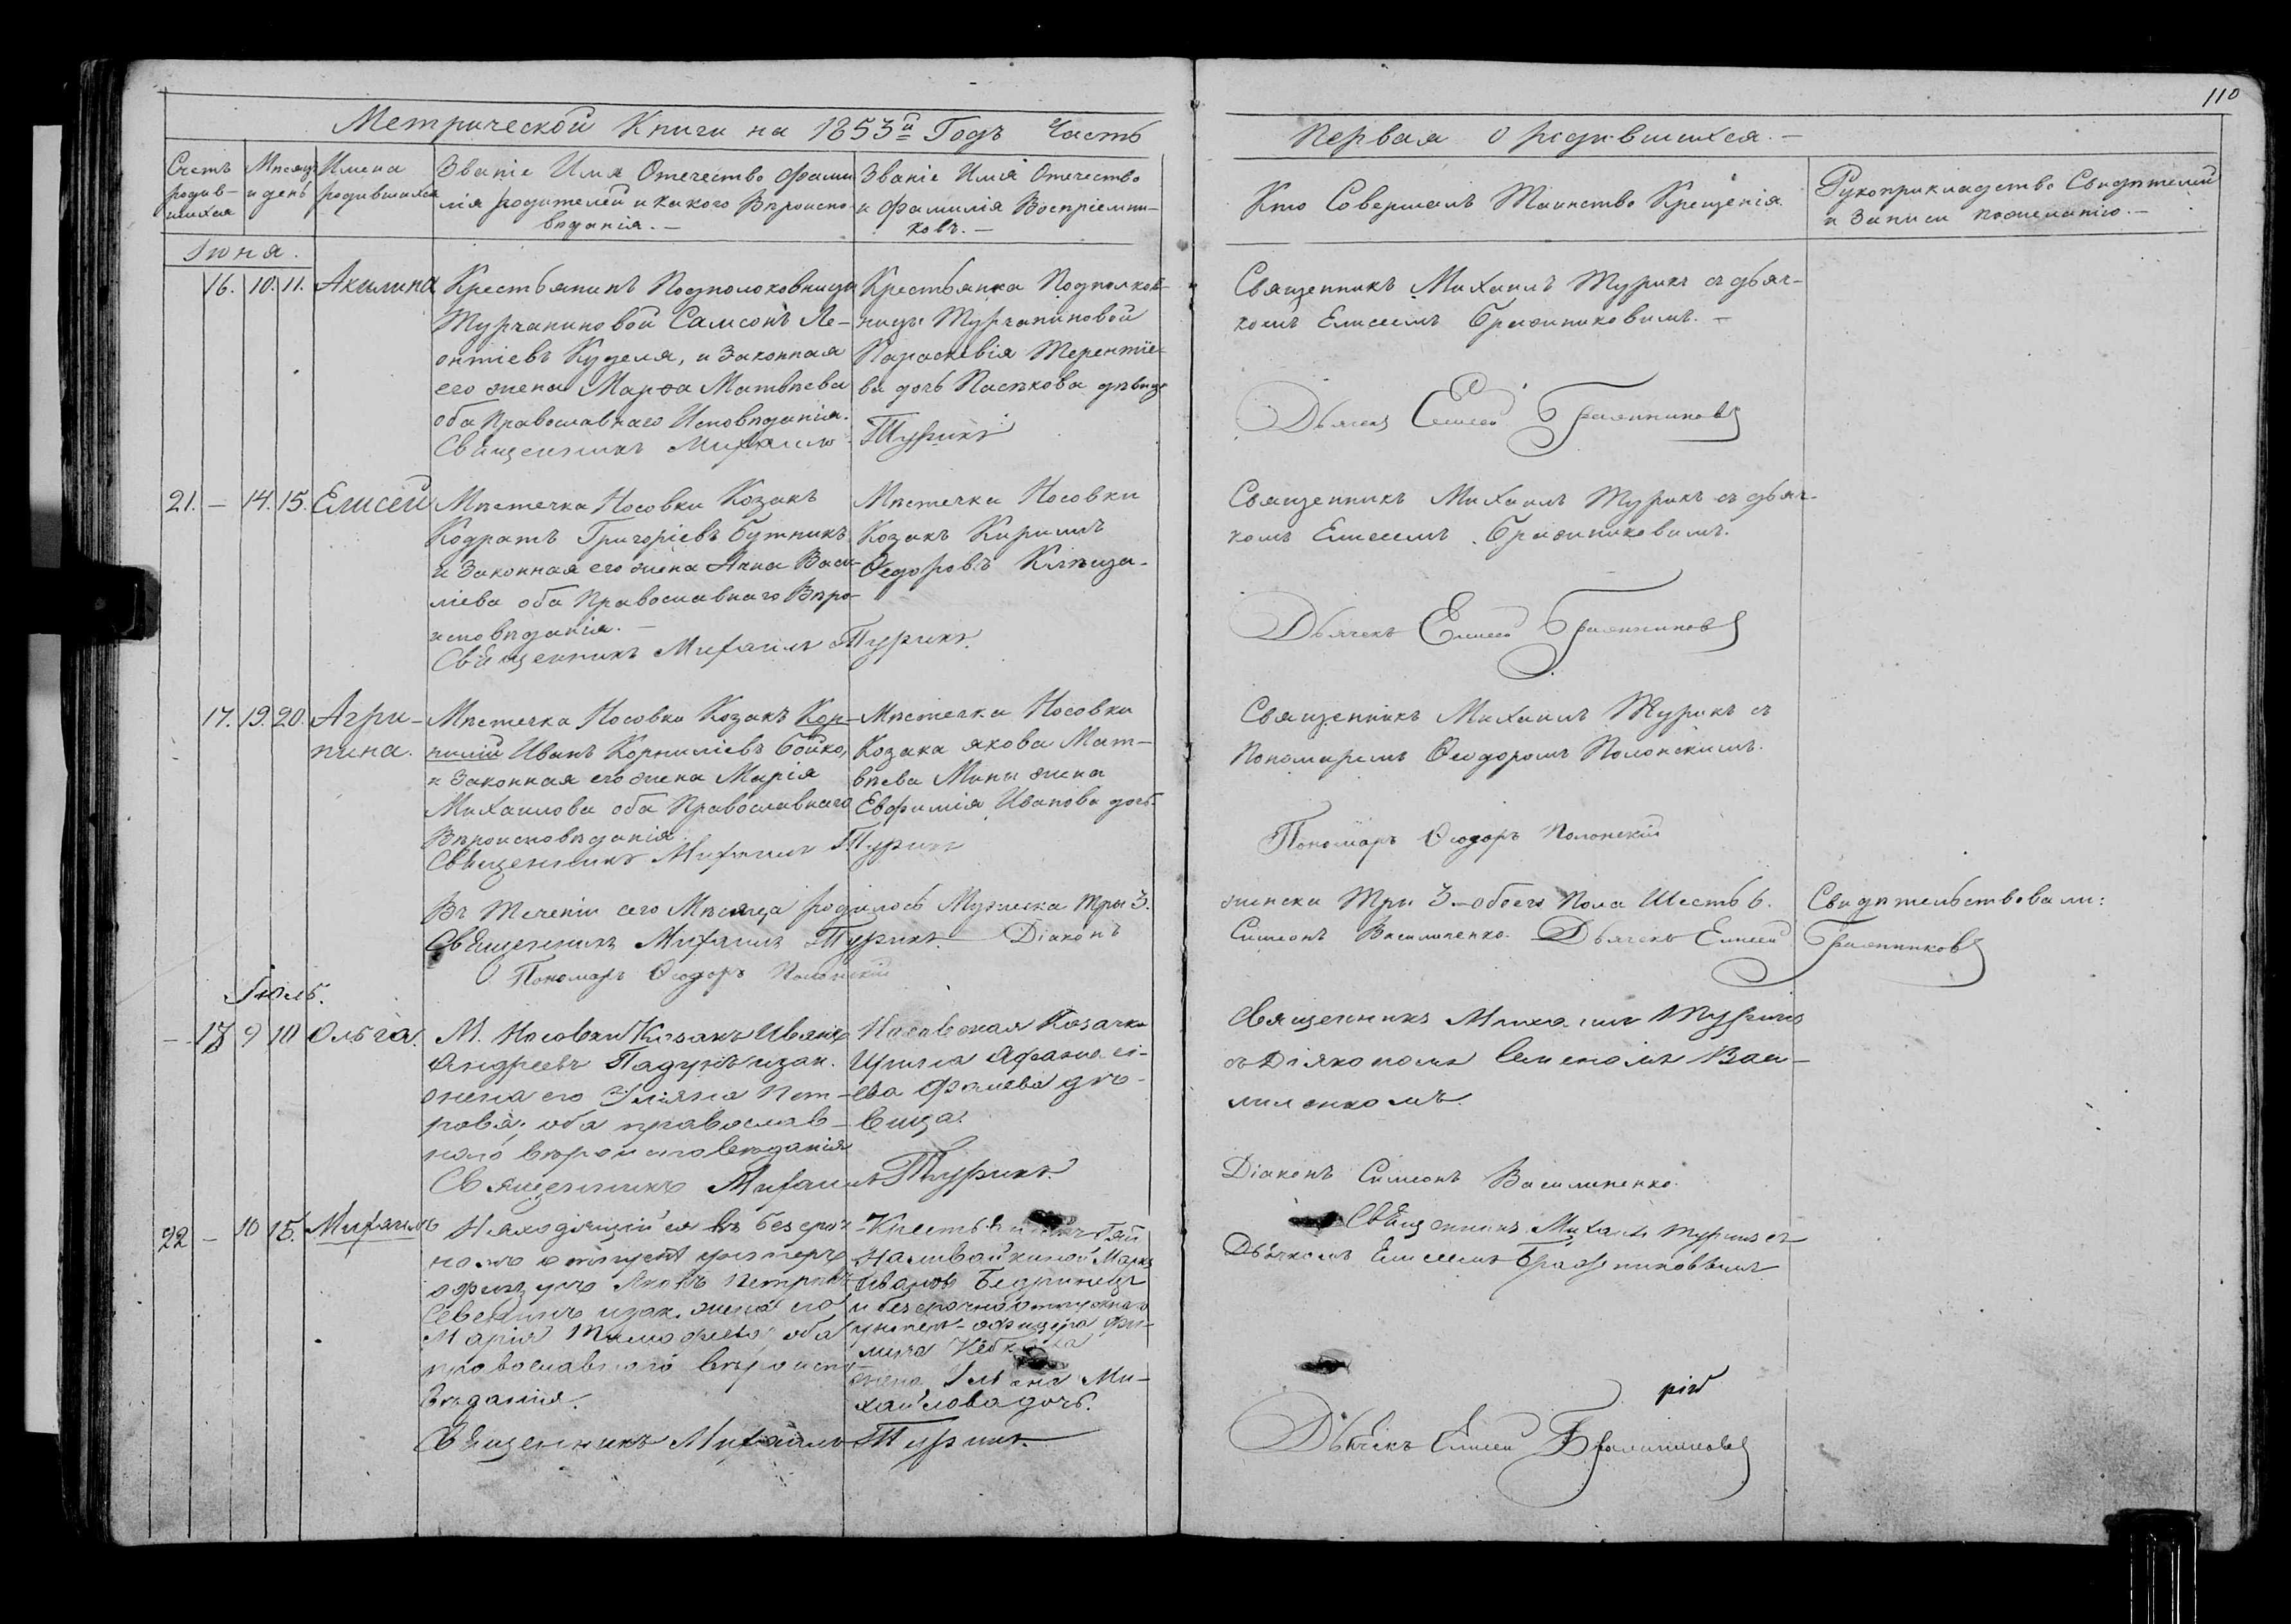 110
Метрической Книги на 1853й Годъ Часть
Первая О родившихся.—
Счетъ родив-шихся
Мѣсяцъ и день
Имена родившихся
Званіе Имя Отечество Фами
лія родителей и какого Вѣроиспо-
вѣданія.—
Званіе Имя Отечество
и Фамилія Воспріемни-
ковъ.—
Кто Совершалъ Таинство Крещенія.
Рукоприкладство Свидѣтелей
и Записи по желанію.—
Іюня.
16. 10. 11. Акилина
Крестьянинъ Подполковницы
Турчаниновой Самсонъ Ле-
онтіевъ Куделя, и Законная
его жена Марѳа Матвѣева
оба Православнаго Исповѣданія.
Священникъ Михаилъ Турикъ
Крестьянка Подполков-
ницы Турчаниновой
Параскевія Терентіе-
ва дочь Пасѣкова дѣвица
Священникъ Михаилъ Турикъ съ дьяч-
комъ Елисеемъ Бражниковымъ.—
Дьячекъ Елисей Бражниковъ
21. — 14. 15. Елисей
Мѣстечка Носовки Козакъ
Кодратъ Григоріевъ Бутникъ
и Законная его жена Анна Васи-
ліева оба Православнаго Вѣро-
исповѣданія.—
Священникъ Михаилъ Турикъ.
Мѣстечка Носовки
Козакъ Кирилъ
Ѳедоровъ
Священникъ Михаилъ Турикъ съ дьяч-
комъ Елисеемъ Бражниковымъ.
Дьячекъ Елисей Бражниковъ
17. 19. 20. Агри-
пина.
Мѣстечка Носовки Козакъ Кор-
нилій Иванъ Корниліевъ Бойко,
и Законная его жена Марія
Михаилова оба Православнаго
Вѣроисповѣданія.
Священникъ Михаилъ Турикъ
Мѣстечка Носовки
Козака Якова Мат-
вѣева Мины жена
Евфимія Иванова дочь.
Священникъ Михаилъ Турикъ съ
Пономаремъ Ѳеодоромъ Полонскимъ.
Пономарь Ѳеодоръ Полонскій
Въ Теченіи сего Мѣсяца родилось Мужеска Три 3.
женска Три 3.—обоего Пола Шесть 6. Свидѣтельствовали:
Священникъ Михаилъ Турикъ. Діаконъ
Симеонъ Василиненко. Дьячекъ Елисей Бражниковъ
Пономарь Ѳеодоръ Полонскій
Іюль.
— 18 9 10 Ольга.
М. Носовки Козакъ Иванъ
Андреевъ Падунъ и зак.
жена его Уліяна Пет-
рова; оба православ-
наго вѣроисповѣданія
Священникъ Михаилъ Турикъ.
Носовская Козачка
Афанасі-
ева дѣ-
вица.
Священникъ Михаилъ Турикъ
съ Діакономъ Симеономъ Васи-
линенкомъ.
Діаконъ Симеонъ Василиненко.
22 — 10 15. Михаилъ
Находящійся въ безсроч
номъ отпускѣ унтеръ
офицеръ Яковъ Петровъ
и зак. жена его
Марія Тимофеева оба
православнаго вѣроиспо
вѣданія.
Священникъ Михаилъ Турикъ.
Наливайкиной Марко
Ивановъ Бедринецъ
и безсрочноотпускнаго
унтеръ-офицера Фи-
липа
жена Ульяна Ми-
хайлова дочь.
Священникъ Михаилъ Турикъ съ
Дьячкомъ Елисеемъ Бражниковымъ
Дьячекъ Елисей Бражниковъ